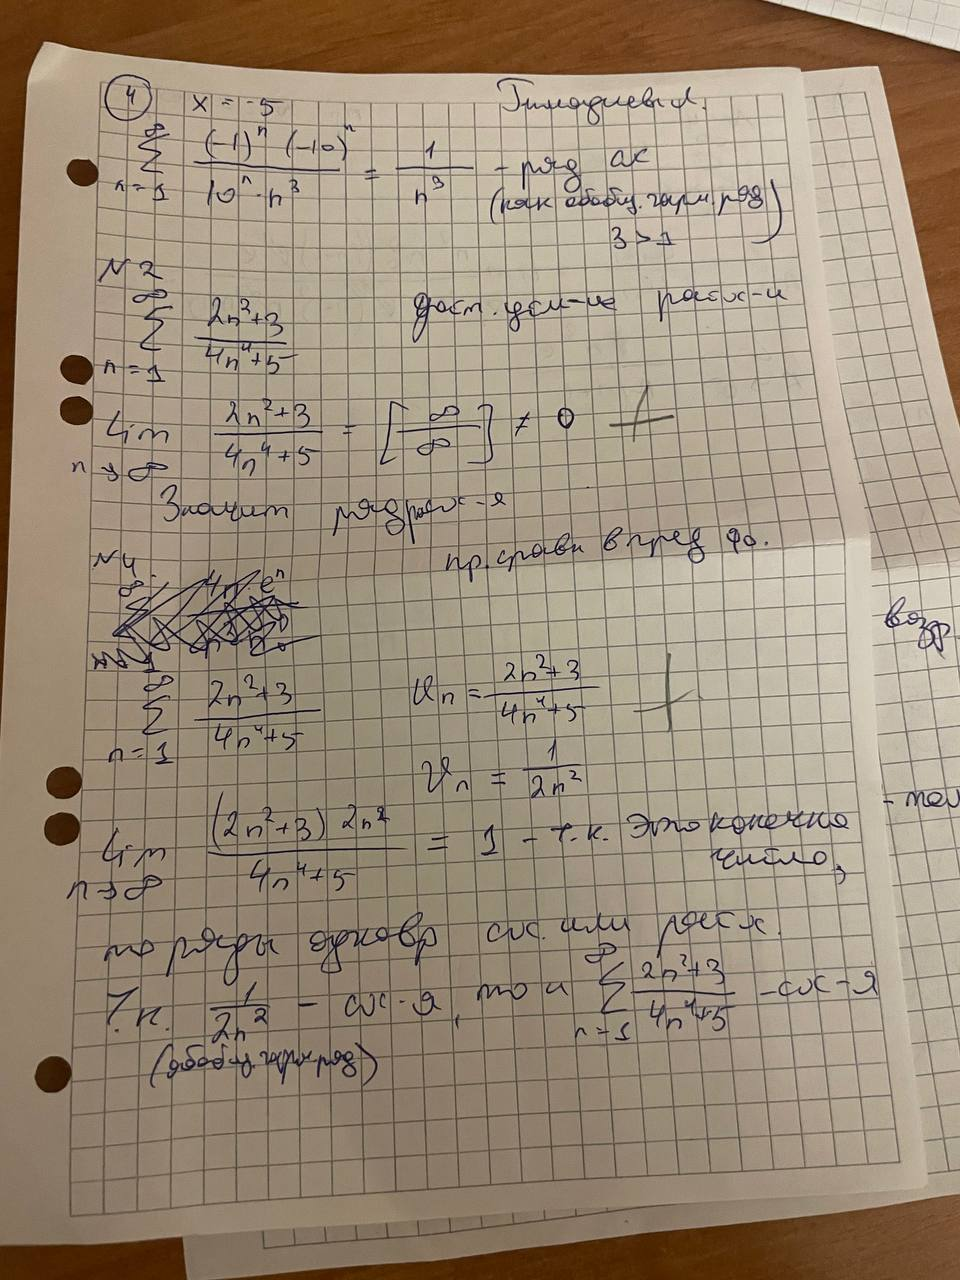 4 x = -5 Тимадиевы А.
∞ ∑ n=1 (-1)ⁿ (-10)ⁿ / 10ⁿ · n³ = 1 / n³ - ряд ас
(как обобщ. гарм. ряд)
3 > 1
N2
∞ ∑ n=1 2n³+3 / 4n⁴+5 дост. усл-ие расх-и
Lim n→∞ 2n²+3 / 4n⁴+5 = [∞ / ∞] ≠ 0 +
Значит ряд расх-я
N4. пр. сравн в пред фо.
∞ ∑ n=1 2n²+3 / 4n⁴+5 Un = 2n²+3 / 4n⁴+5 +
Vn = 1 / 2n²
Lim n→∞ (2n²+3) 2n² / 4n⁴+5 = 1 - т.к. это конечно
число,
то ряды одновр сх. или расх.
Т.к. 1 / 2n² - сх-я, то и ∞ ∑ n=1 2n²+3 / 4n⁴+5 - сх-я
(обобщ. гарм. ряд)
возр.